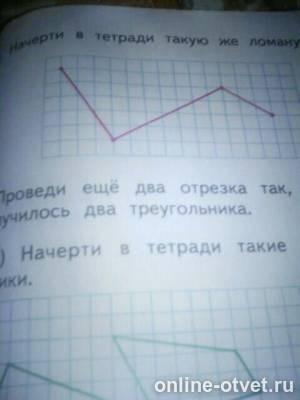 Начерти в тетради такую же ломану
Проведи ещё два отрезка так,
училось два треугольника.
) Начерти в тетради такие
ики.
online-otvet.ru